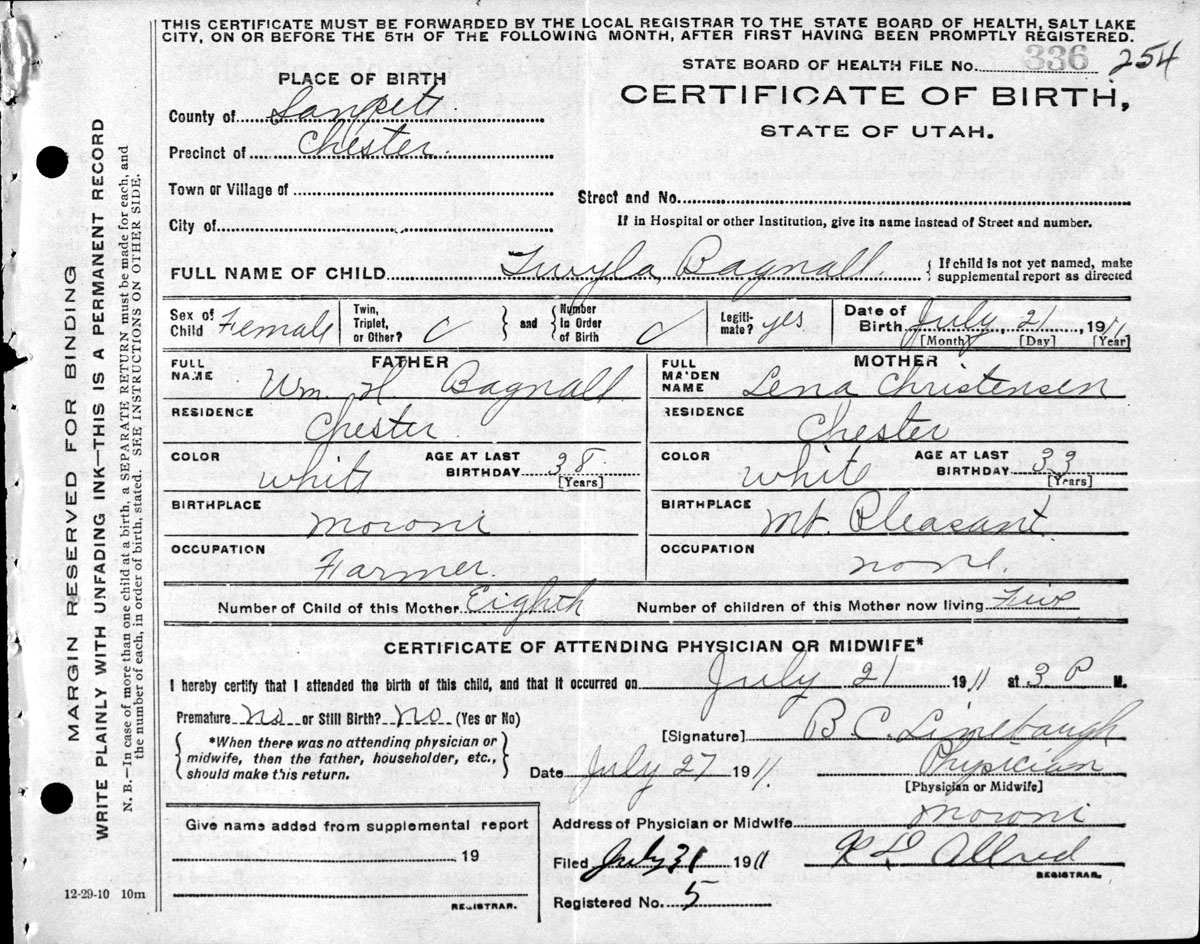 THIS CERTIFICATE MUST BE FORWARDED BY THE LOCAL REGISTRAR TO THE STATE BOARD OF HEALTH, SALT LAKE
CITY, ON OR BEFORE THE 5TH OF THE FOLLOWING MONTH, AFTER FIRST HAVING BEEN PROMPTLY REGISTERED.
STATE BOARD OF HEALTH FILE No. 336 254
PLACE OF BIRTH
CERTIFICATE OF BIRTH,
STATE OF UTAH.
County of Sanpete
Precinct of Chester
Town or Village of
Street and No.
If in Hospital or other Institution, give its name instead of Street and number.
City of
FULL NAME OF CHILD Twyla Bagnall { If child is not yet named, make
supplemental report as directed
Sex of Child Female
Twin, Triplet, or Other?
and
Number in Order of Birth
Legiti-mate? yes
Date of Birth July 21, 1911
[Month] [Day] [Year]
FATHER
FULL NAME Wm. H. Bagnall
RESIDENCE Chester
COLOR White AGE AT LAST BIRTHDAY 38 [Years]
BIRTHPLACE Moroni
OCCUPATION Farmer
MOTHER
FULL MAIDEN NAME Lena Christensen
RESIDENCE Chester
COLOR White AGE AT LAST BIRTHDAY 33 [Years]
BIRTHPLACE Mt. Pleasant
OCCUPATION none
Number of Child of this Mother Eighth Number of children of this Mother now living Five
CERTIFICATE OF ATTENDING PHYSICIAN OR MIDWIFE*
I hereby certify that I attended the birth of this child, and that it occurred on July 21 1911 at 3 P M.
Premature No or Still Birth? No (Yes or No)
*When there was no attending physician or
midwife, then the father, householder, etc.,
should make this return.
[Signature] B. C. Linebaugh
Date July 27 1911. Physician
[Physician or Midwife]
Give name added from supplemental report
19
REGISTRAR.
Address of Physician or Midwife Moroni
Filed July 31 1911 Allred
REGISTRAR.
Registered No. 5
12-29-10 10m
MARGIN RESERVED FOR BINDING
WRITE PLAINLY WITH UNFADING INK—THIS IS A PERMANENT RECORD
N. B.—In case of more than one child at a birth, a SEPARATE RETURN must be made for each, and
the number of each, in order of birth, stated. SEE INSTRUCTIONS ON OTHER SIDE.